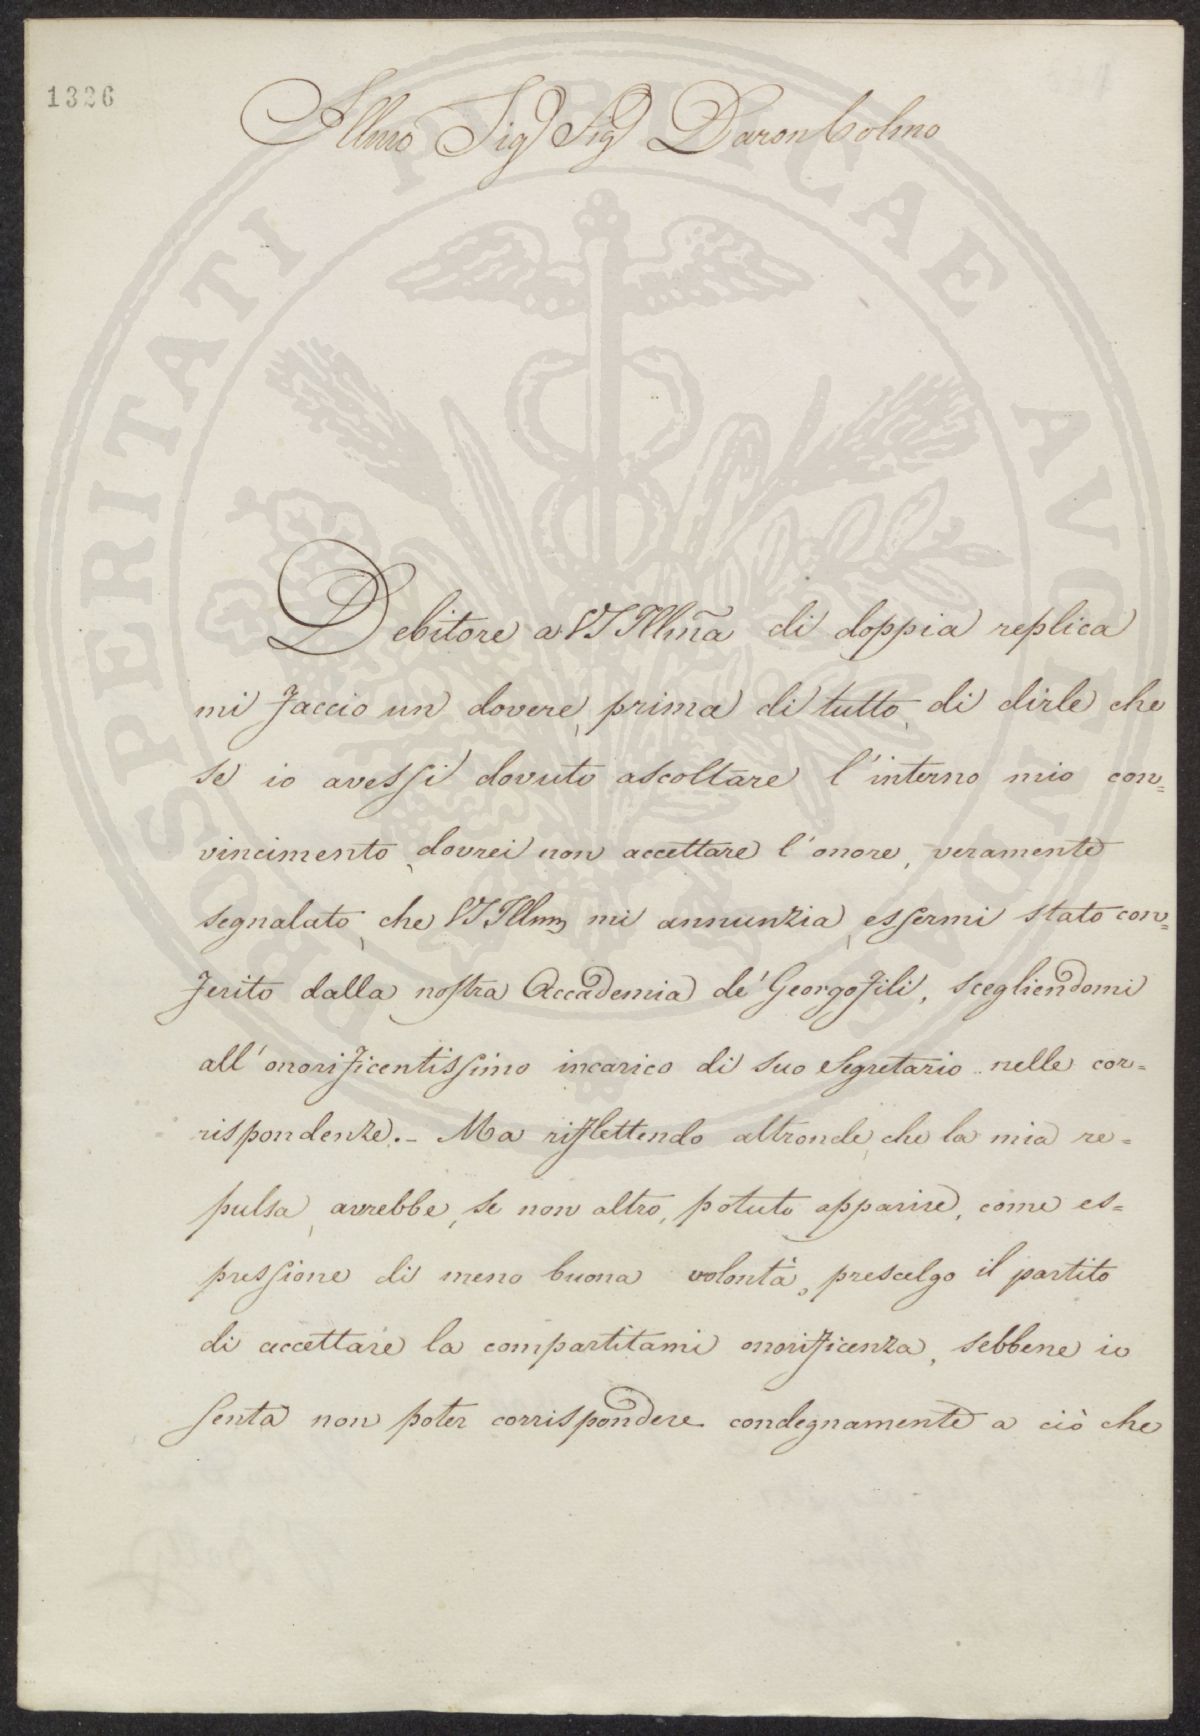 1326
Illmo Sig Sig Baron Colmo
Debitore a VS Illma di doppia replica
mi faccio un dovere, prima di tutto, di dirle che
se io avessi dovuto ascoltare l'interno mio con=
vincimento, dovrei non accettare l'onore, veramente
segnalato, che VS Illma mi annunzia, essermi stato con=
ferito dalla nostra Accademia de' Georgofili, scegliendomi
all'onorificentissimo incarico di suo Segretario nelle cor=
rispondenze.- Ma riflettendo altronde, che la mia re=
pulsa, avrebbe, se non altro, potuto apparire, come es=
pressione di meno buona volontà, prescelgo il partito
di accettare la compartitami onorificenza, sebbene io
senta non poter corrispondere condegnamente a ciò che
PROSPERITATI PVBLICAE AVGENDAE